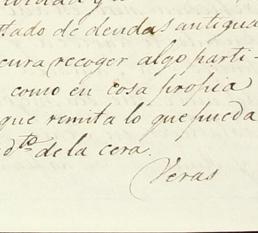 tado de deudas antigua
cura recoger algo parti-
como en cosa propia
que remita lo que pueda
d.to de la cera.
Veras